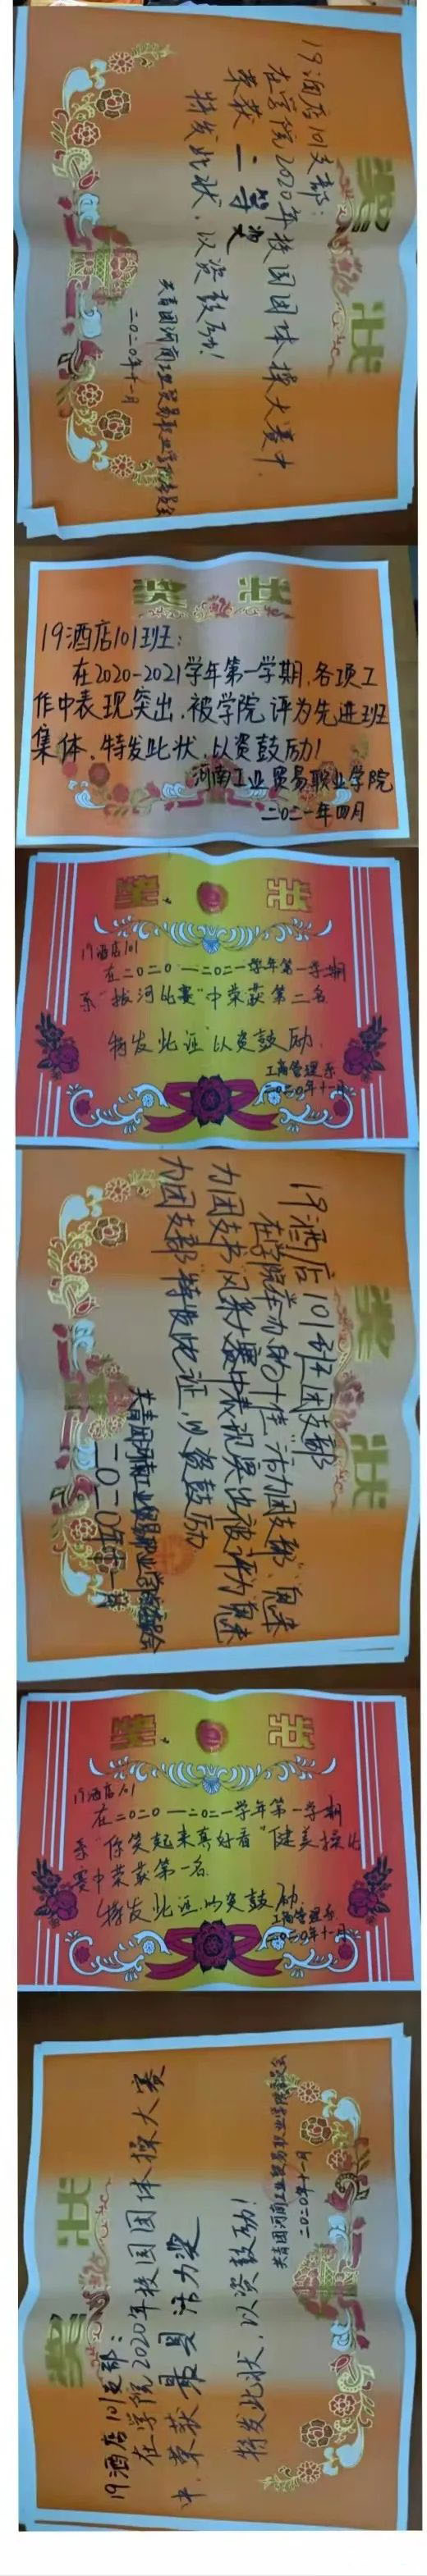 奖状
19酒店101支部：
在学院2020年校园团体操大赛中
荣获二等奖
特发此状，以资鼓励！
共青团河南工业贸易职业学院委员会
二〇二〇年十一月
奖状
19酒店101班：
在2020-2021学年第一学期，各项工
作中表现突出，被学院评为先进班
集体，特发此状，以资鼓励！
河南工业贸易职业学院
二〇二一年四月
奖状
19酒店101
在二〇二〇—二〇二一学年第一学期
系“拔河比赛”中荣获第二名
特发此证 以资鼓励.
工商管理系
二〇二〇年十一月
奖状
19酒店101班团支部
在学院举办的十佳“活力团支部、魅
力团支书”风采大赛中表现突出被评为魅
力团支部“特发此证，以资鼓励
共青团河南工业贸易职业学院委员会
二〇二〇年十一月
奖状
19酒店101
在二〇二〇—二〇二一学年第一学期
系“你笑起来真好看”健美操比
赛中荣获第一名.
特发此证.以资鼓励.
工商管理系
二〇二〇年十一月
奖状
19酒店101支部：
在学院2020年校园团体操大赛
中，荣获最具活力奖
特发此状，以资鼓励！
共青团河南工业贸易职业学院委员会
二〇二〇年十一月